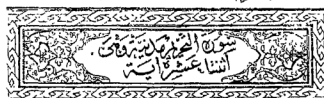 سورة التحريم مدنية وهى
اثنتا عشرة اية